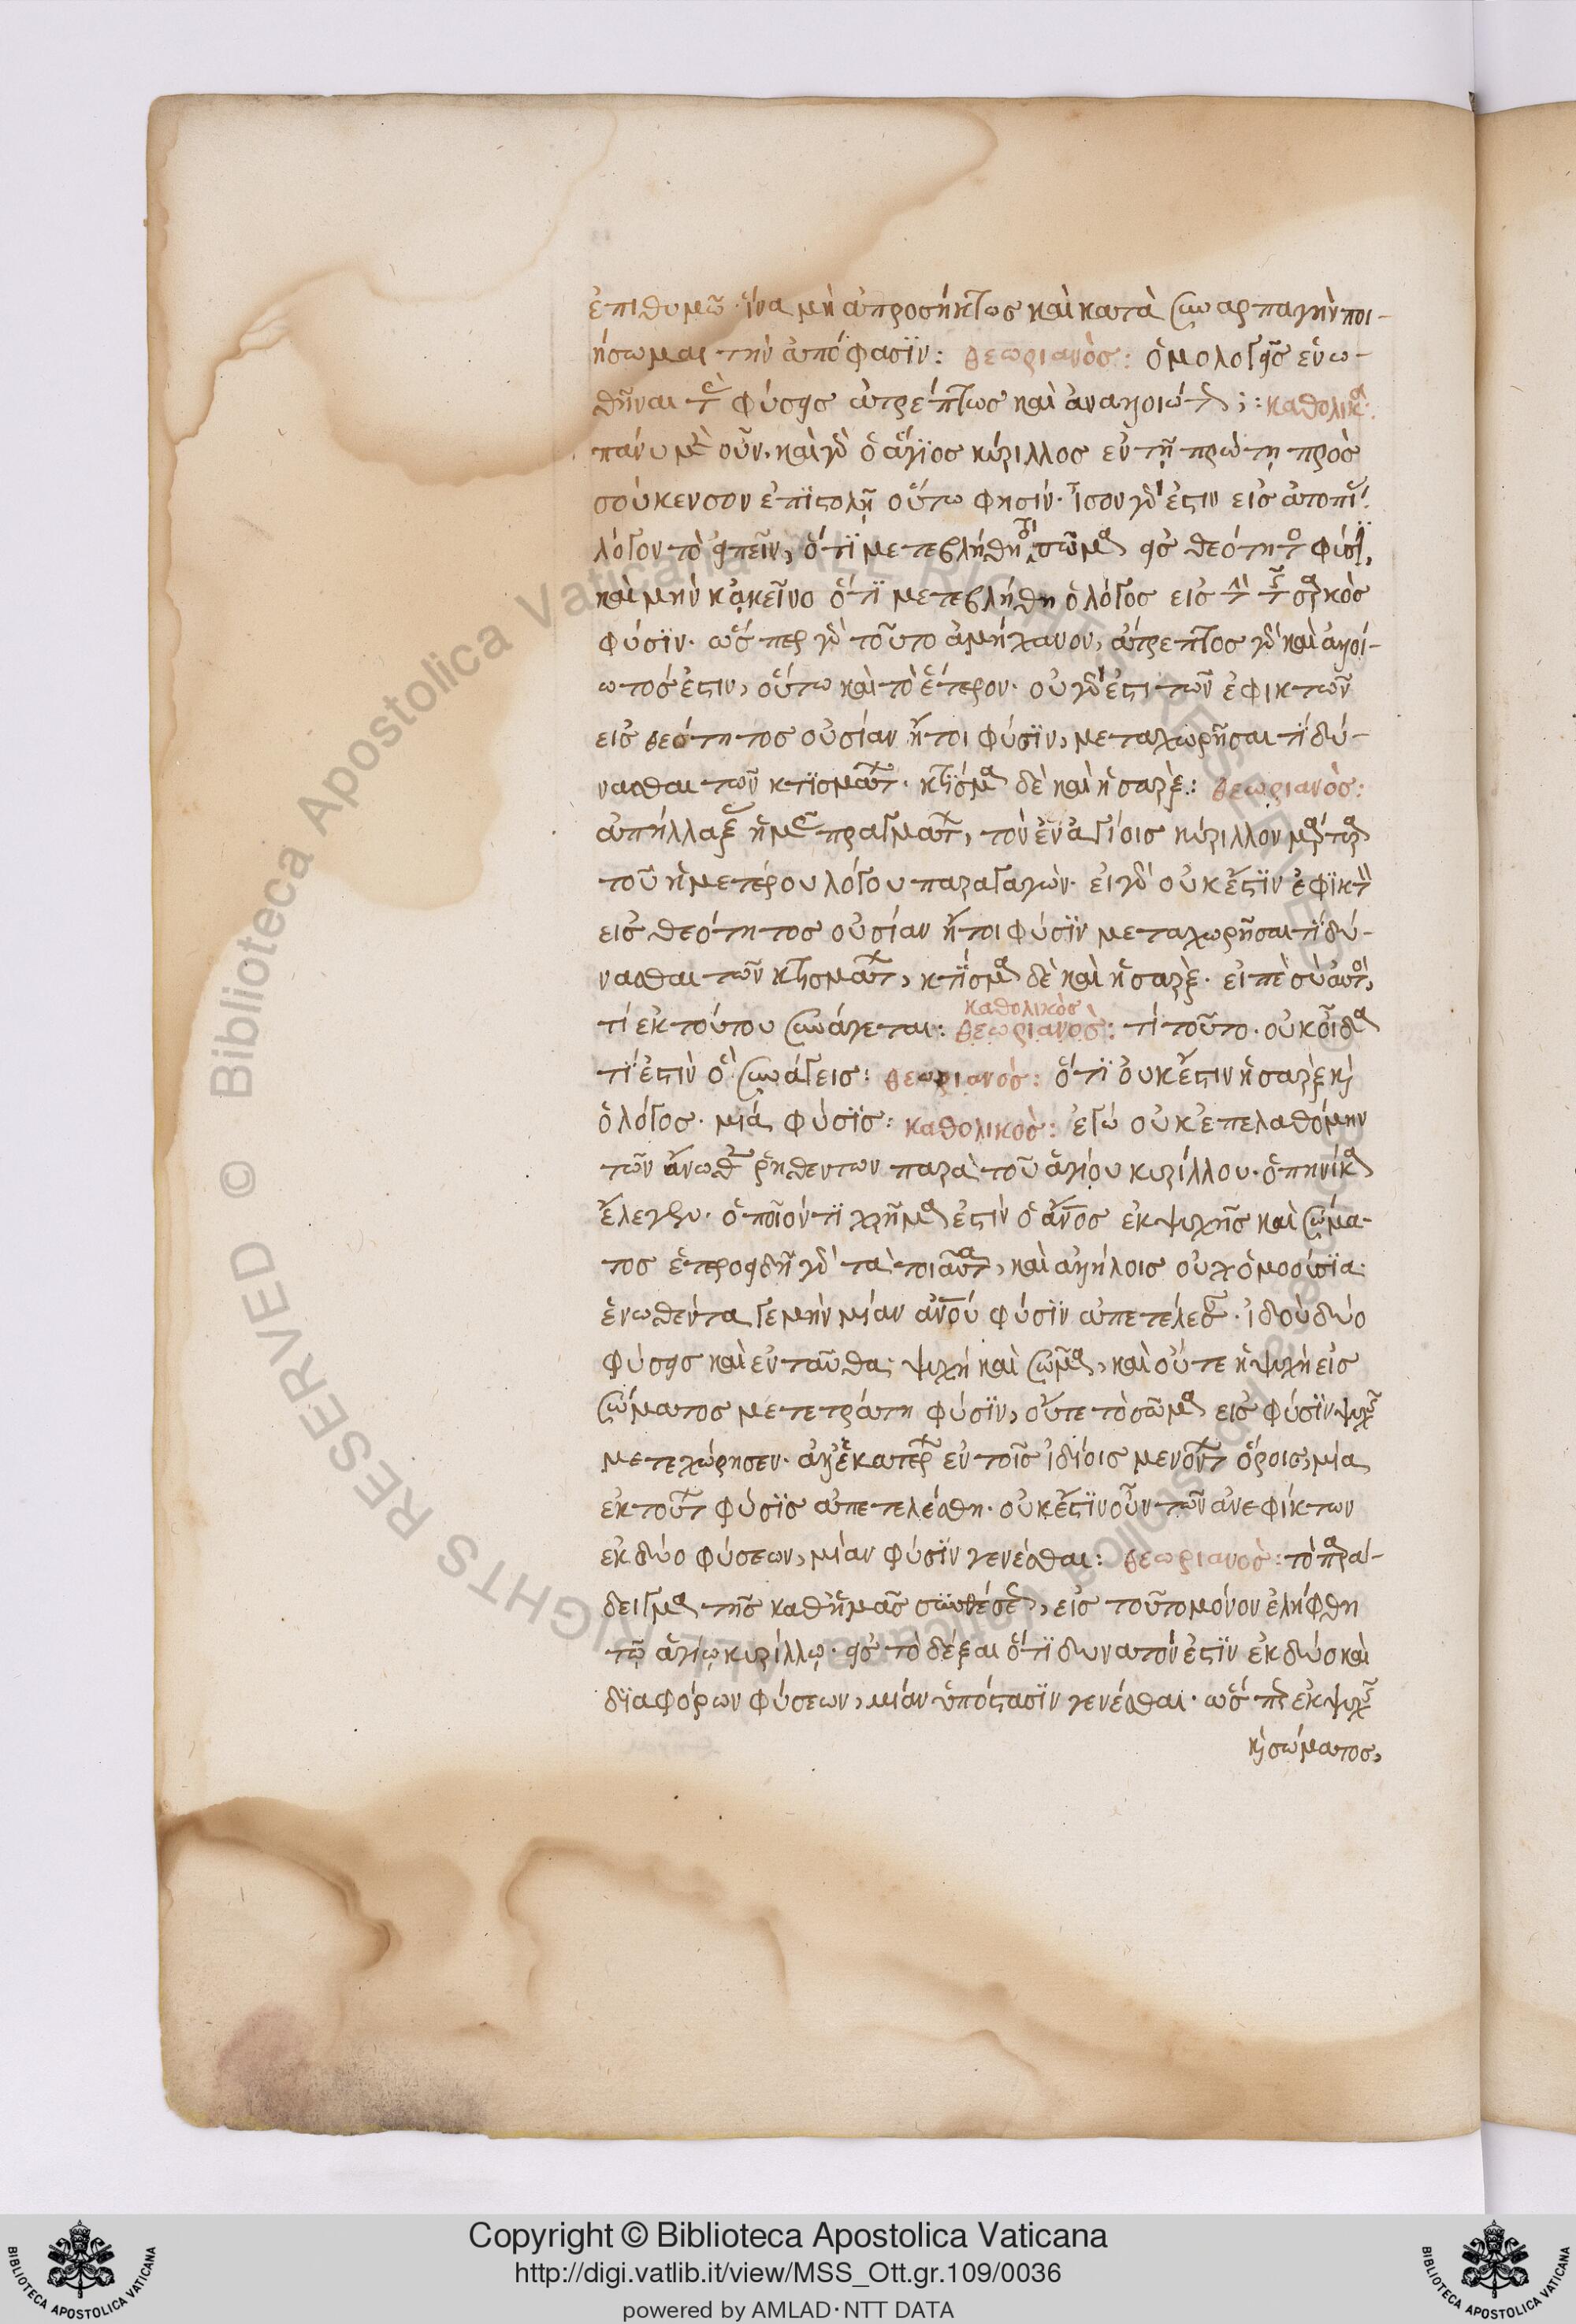 ἐπιθυμῶ· ἵνα μὴ ἀπροσήκτως καὶ κατὰ συναρπαγὴν ποι-
ήσωμαι τὴν ἀπόφασϊν: θεωριανὸς: ὁμολογεῖς ἑνω-
θῆναι τὰς φύσεις ἀτρέπτως καὶ ἀναλλοιώτως; : καθολικὸς:
πάνυ μὲν οὖν· καὶ γὰρ ὁ ἅγϊος κύριλλος ἐν τῇ πρώτῃ πρὸς
σούκενσον ἐπϊστολῇ οὕτω φησίν· ἴσον γὰρ ἐστιν εἰς ἀτοπίας
λόγον τὸ εἰπεῖν, ὅτϊ μετεβλήθη τὸ σῶμα εἰς θεότητος φύσιν,
καὶ μὴν κἀκεῖνο ὅτϊ μετεβλήθη ὁ λόγος εἰς τὴν τῆς σαρκὸς
φύσϊν· ὥσπερ γὰρ τοῦτο ἀμήχανον, ἄτρεπτος γὰρ καὶ ἀλλοί-
ωτος ἐστιν, οὕτω καὶ τὸ ἕτερον· οὐ γὰρ ἐστι τῶν ἐφικτῶν
εἰς θεότητος οὐσίαν ἤτοι φύσϊν, μεταχωρῆσαι τϊ δύ-
νασθαι τῶν κτϊσμάτων· κτϊσμα δὲ καὶ ἡ σαρξ: θεωριανὸς:
ἀπήλλαξας ἡμᾶς πραγμάτων, τὸν ἐν ἁγίοις κύριλλον μάρτυρα
τοῦ ἡμετέρου λόγου παραγαγών· εἰ γὰρ οὐκ ἔστϊν ἐφϊκτὸν
εἰς θεότητος οὐσίαν ἤτοι φύσϊν μεταχωρῆσαι τϊ δύ-
νασθαι τῶν κτισμάτων, κτϊσμα δὲ καὶ ἡ σαρξ· εἰπὲ σὺ αὐτὸς,
καθολικὸς
τί ἐκ τούτου συνάγεται: θεωριανὸς: τί τοῦτο· οὐκ οἶδα
τϊ ἐστιν ὃ συνάγεις: θεωριανὸς: ὅτϊ οὐκ ἔστιν ἡ σαρξ καὶ
ὁ λόγος· μιὰ φύσϊς: καθολικὸς: ἐγὼ οὐκ ἐπελαθόμην
τῶν ἄνωθεν ῥηθέντων παρὰ τοῦ ἁγίου κυρίλλου· ὁπηνίκα
ἔλεγον· ὁποῖόν τϊ χρῆμα ἐστιν ὁ ἄνος ἐκ ψυχῆς καὶ σώμα-
τος ἑτεροειδῆ γὰρ τὰ τοιαῦτα, καὶ ἀλλήλοις οὐχ ὁμοούσϊα·
ἑνωθέντα γε μὴν μίαν ἀνου φύσϊν ἀπετέλεσαν· ἰδοὺ δύο
φύσεις καὶ ἐνταῦθα· ψυχὴ καὶ σῶμα, καὶ οὔτε ἡ ψυχὴ εἰς
σώματος μετετράπη φύσϊν, οὔτε τὸ σῶμα εἰς φύσϊν ψυχῆς
μετεχώρησεν· ἀλλ' ἑκατέρων ἐν τοῖς ἰδίοις μενόντων ὅροις, μία
ἐκ τούτων φύσϊς ἀπετελέσθη· οὐκ ἔστϊν οὖν τῶν ἀνεφίκτων
ἐκ δύο φύσεων, μίαν φύσϊν γενέσθαι: θεωριανὸς: τὸ παρά-
δειγμα τῆς καθ' ἡμᾶς συνθέσεως, εἰς τοῦτο μόνον ἐλήφθη
τῷ ἁγίῳ κυρίλλῳ· εἰς τὸ δεῖξαι ὅτϊ δυνατόν ἐστϊν ἐκ δύο καὶ
δϊαφόρων φύσεων, μίαν ὑπόστασϊν γενέσθαι· ὥσπερ ἐκ ψυχῆς
καὶ σώματος,
Copyright © Biblioteca Apostolica Vaticana
http://digi.vatlib.it/view/MSS_Ott.gr.109/0036
powered by AMLAD·NTT DATA